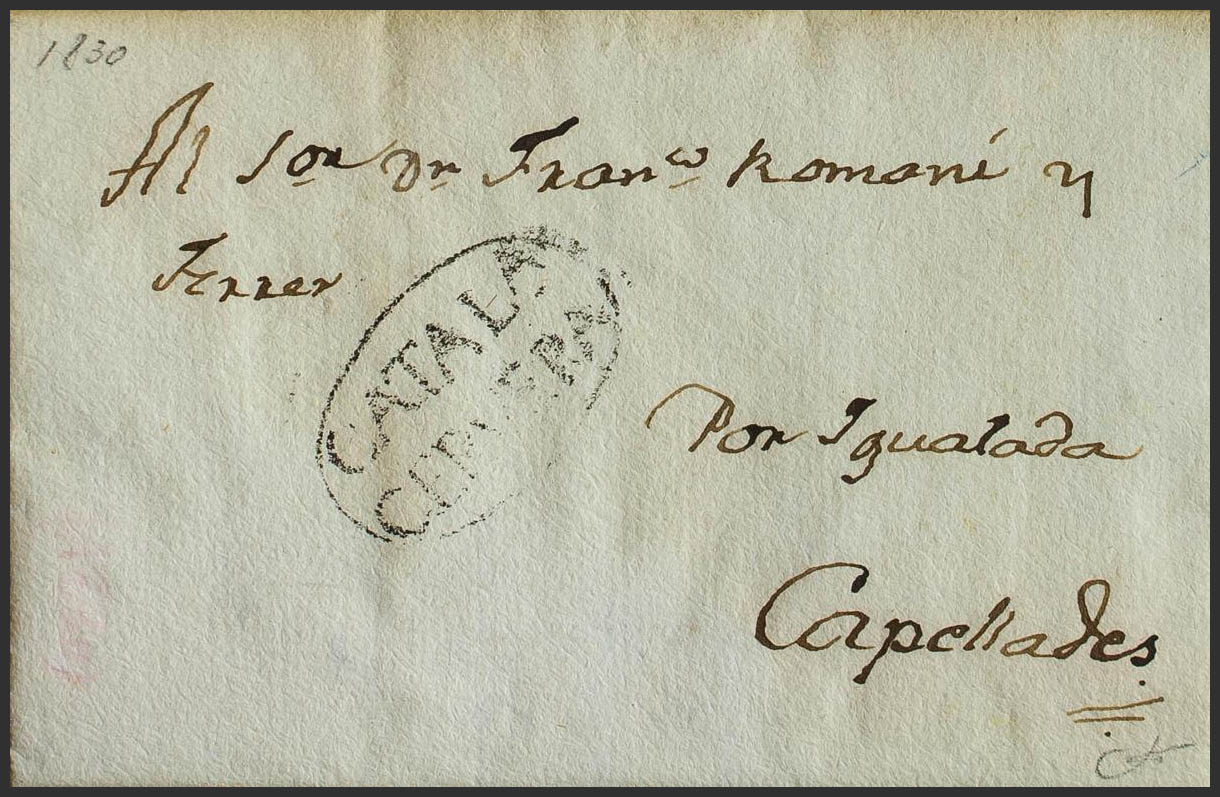 1830
Al Sor Dn Franco Romaní y
Ferrer
CATALA
CERVERA
Por Igualada
Capellades